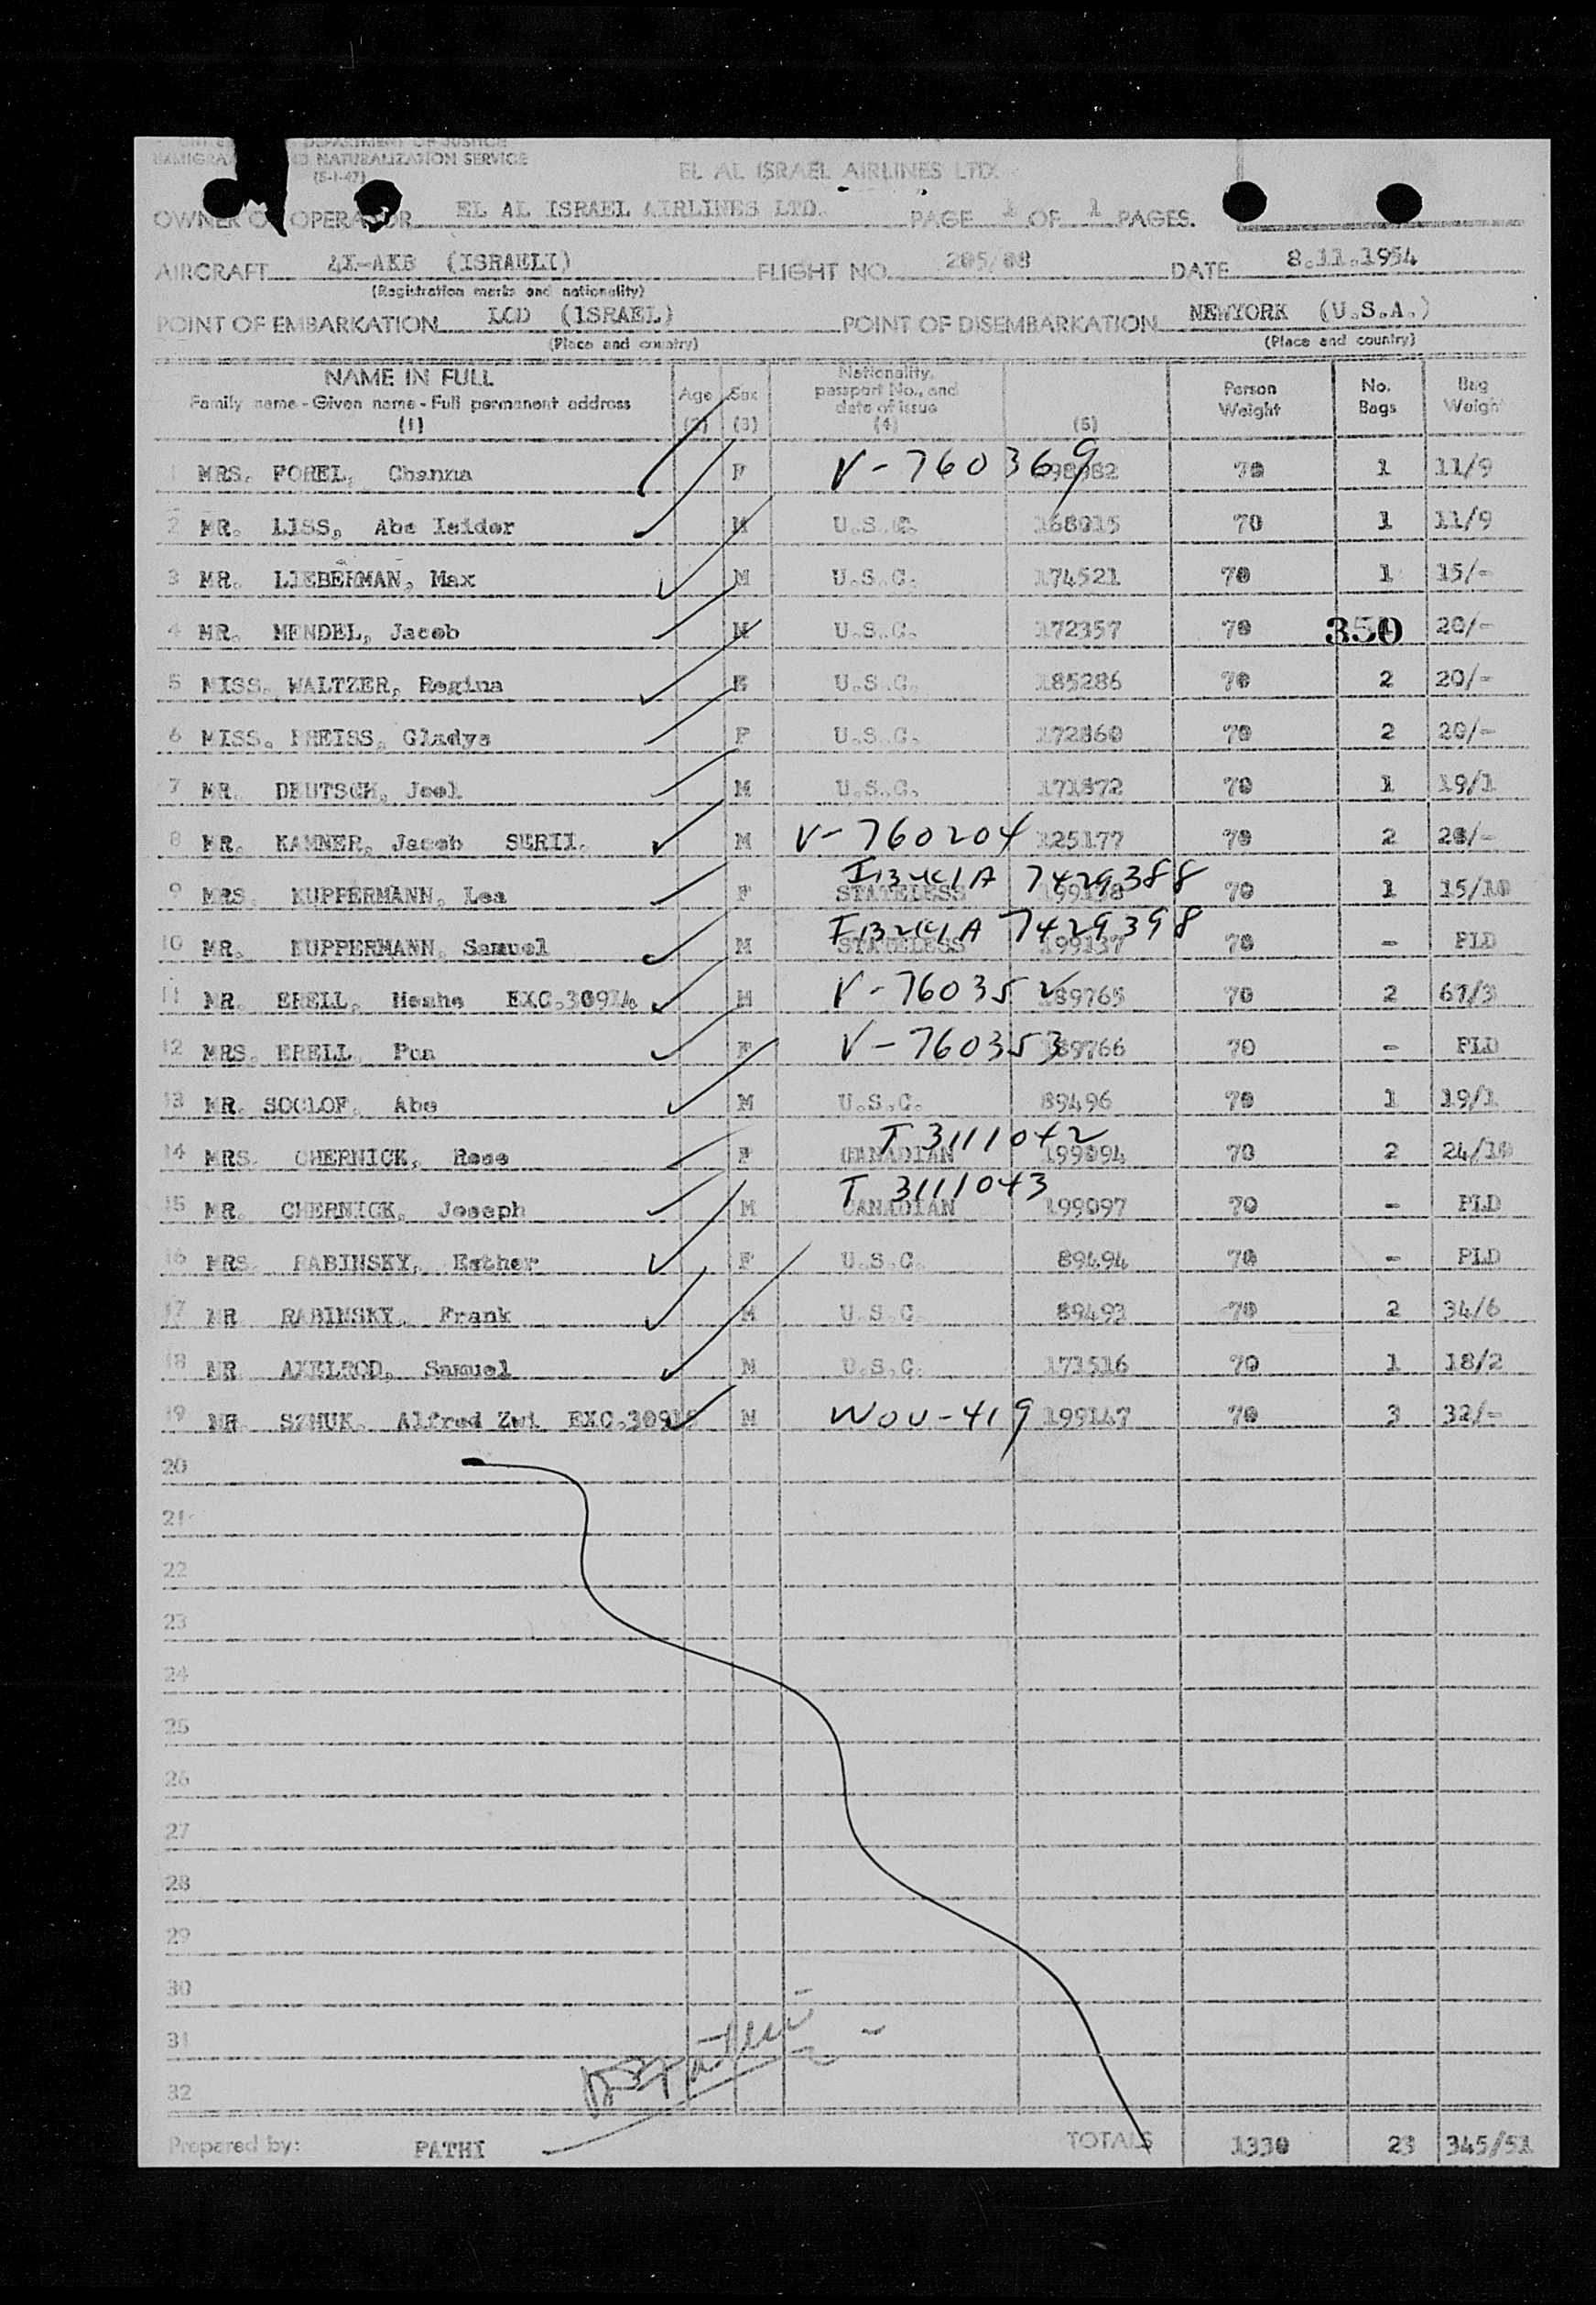 DEPARTMENT OF JUSTICE
IMMIGRA NATURALIZATION SERVICE
(5-1-47)
EL AL ISRAEL AIRLINES LTD.
OWNER O OPERATOR EL AL ISRAEL AIRLINES LTD. PAGE 1 OF 1 PAGES.
AIRCRAFT 4X-AKB (ISRAELI) FLIGHT NO. 205/08 DATE 8.11.1954
(Registration marks and nationality)
POINT OF EMBARKATION LOD (ISRAEL) POINT OF DISEMBARKATION NEWYORK (U.S.A.)
(Place and country) (Place and country)
NAME IN FULL
Family name - Given name - Full permanent address
(1)
Age
(2)
Sex
(3)
Nationality, passport No., and date of issue
(4)
(5)
Person Weight
No. Bags
Bag Weight
1 MRS. FOREL, Channa F V-760369 70 1 11/9
2 MR. LISS, Abe Isidor M U.S.C. 168015 70 1 11/9
3 MR. LIEBERMAN, Max M U.S.C. 174521 70 1 15/-
4 MR. MENDEL, Jacob M U.S.C. 172357 70 350 20/-
5 MISS. WALTZER, Regina U.S.C. 185286 70 2 20/-
6 MISS. PREISS, Gladys F U.S.C. 172860 70 2 20/-
7 MR. DEUTSCH, Joel M U.S.C. 171872 70 1 19/1
8 MR. KAMNER, Jacob M V-760204 125177 70 2
9 MRS. KUPPERMANN, Lea F STATELESS 7429388 199138 70 1 15/10
10 MR. KUPPERMANN, Samuel M STATELESS 7429398 199137 70 - PLD
11 MR. ERELL, Moshe EXC.30914 M V-760352 189765 70 2 67/3
12 MRS. ERELL F V-760353 189766 70 - PLD
13 MR. SOCLOF, Abe M U.S.C. 89496 70 1 19/1
14 MRS. CHERNICK, Rose F T 3111042 CANADIAN 199094 70 2 24/10
15 MR. CHERNICK, Joseph M T 3111043 CANADIAN 199097 70 - PLD
16 MRS. RABINSKY, Esther F U.S.C. 89494 70 - PLD
17 MR RABINSKY, Frank M U.S.C. 89493 70 2 34/6
18 MR AXELROD, Samuel M U.S.C. 173516 70 1 18/2
19 MR. SZMUK, Alfred Zwi EXC.30915 M WOU-419 199147 70 3 32/-
20
21
22
23
24
25
26
27
28
29
30
31
32
Prepared by: PATHI TOTALS 1330 23 345/51